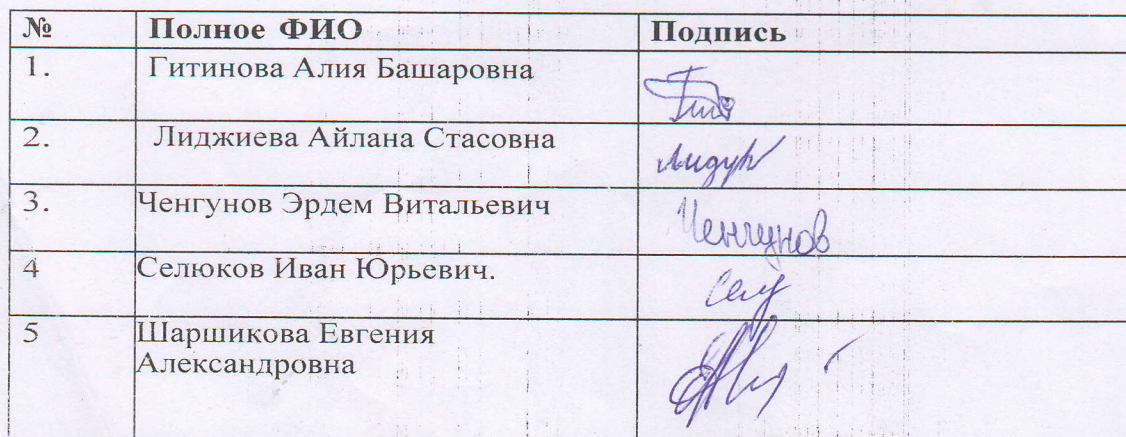 № Полное ФИО Подпись
1. Гитинова Алия Башаровна
2. Лиджиева Айлана Стасовна
3. Ченгунов Эрдем Витальевич Ченгунов
4 Селюков Иван Юрьевич.
5 Шаршикова Евгения
Александровна